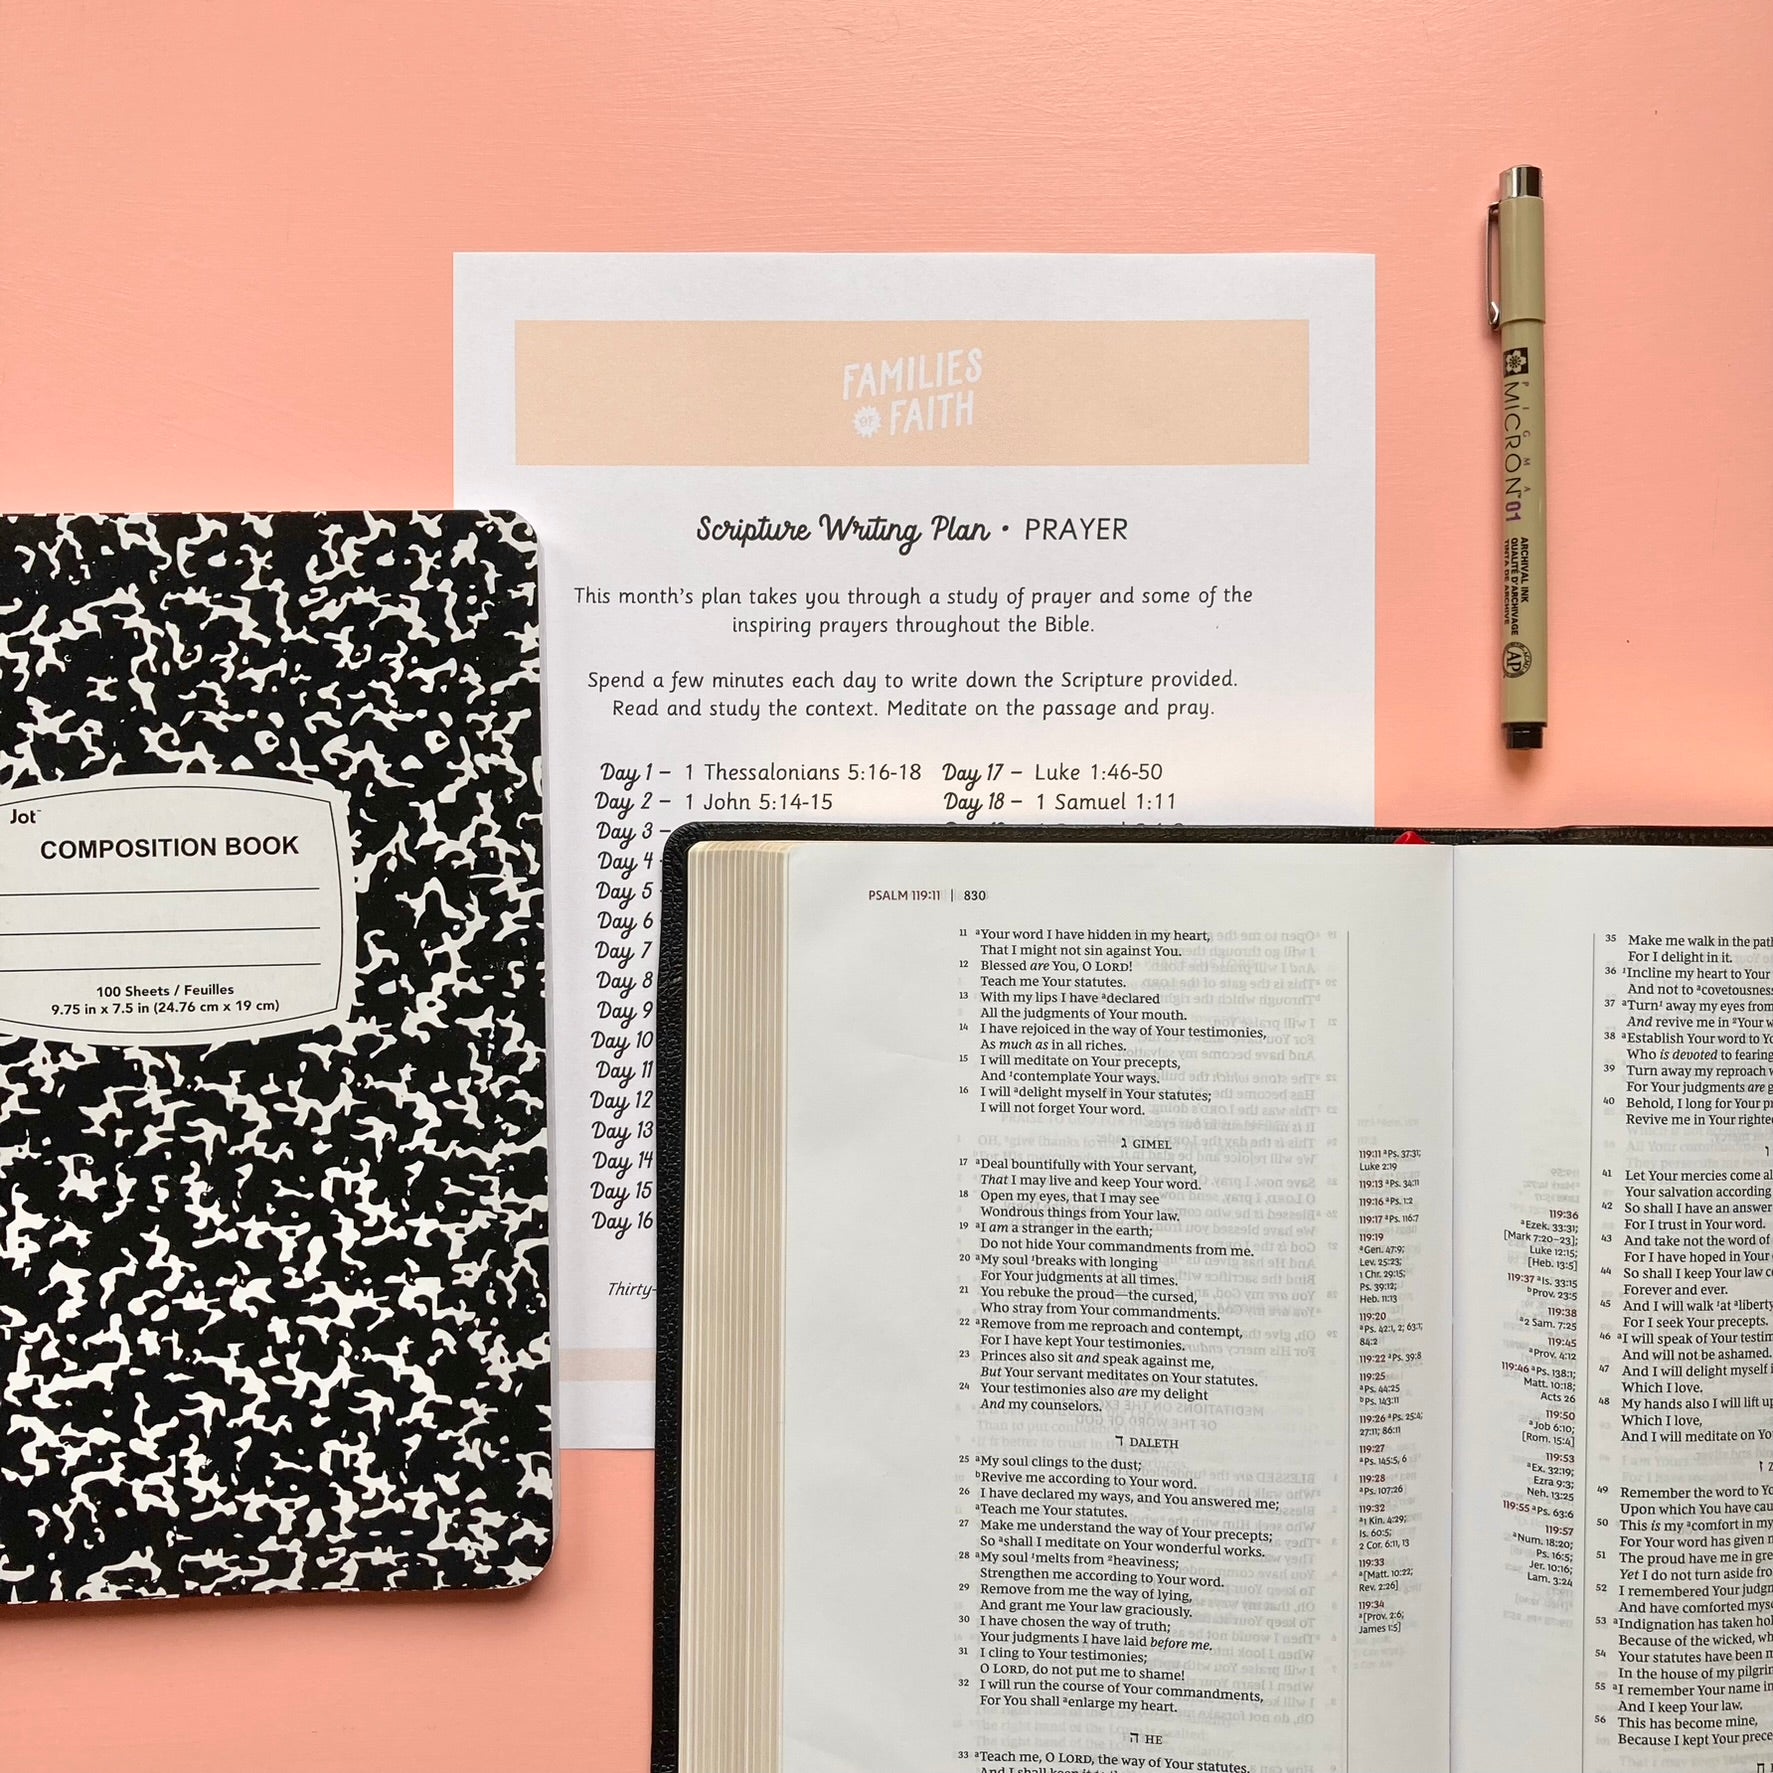 FAMILIES
OF FAITH
Scripture Writing Plan • PRAYER
This month's plan takes you through a study of prayer and some of the
inspiring prayers throughout the Bible.
Spend a few minutes each day to write down the Scripture provided.
Read and study the context. Meditate on the passage and pray.
Day 1 – 1 Thessalonians 5:16-18
Day 2 – 1 John 5:14-15
Day 3 –
Day 4
Day 5
Day 6
Day 7
Day 8
Day 9
Day 10
Day 11
Day 12
Day 13
Day 14
Day 15
Day 16
Day 17 – Luke 1:46-50
Day 18 – 1 Samuel 1:11
Thirty-
Jot™
COMPOSITION BOOK
100 Sheets / Feuilles
9.75 in x 7.5 in (24.76 cm x 19 cm)
PIGMA
MICRON™ 01
ARCHIVAL INK
QUALITÉ D'ARCHIVAGE
TINTA DE ARCHIVE
AP
PSALM 119:11 | 830
11 ᵃYour word I have hidden in my heart,
That I might not sin against You.
12 Blessed are You, O LORD!
Teach me Your statutes.
13 With my lips I have ᵃdeclared
All the judgments of Your mouth.
14 I have rejoiced in the way of Your testimonies,
As much as in all riches.
15 I will meditate on Your precepts,
And ¹contemplate Your ways.
16 I will ᵃdelight myself in Your statutes;
I will not forget Your word.
ג GIMEL
17 ᵃDeal bountifully with Your servant,
That I may live and keep Your word.
18 Open my eyes, that I may see
Wondrous things from Your law.
19 ᵃI am a stranger in the earth;
Do not hide Your commandments from me.
20 ᵃMy soul ¹breaks with longing
For Your judgments at all times.
21 You rebuke the proud—the cursed,
Who stray from Your commandments.
22 ᵃRemove from me reproach and contempt,
For I have kept Your testimonies.
23 Princes also sit and speak against me,
But Your servant meditates on Your statutes.
24 Your testimonies also are my delight
And my counselors.
ד DALETH
25 ᵃMy soul clings to the dust;
ᵇRevive me according to Your word.
26 I have declared my ways, and You answered me;
ᵃTeach me Your statutes.
27 Make me understand the way of Your precepts;
So ᵃshall I meditate on Your wonderful works.
28 ᵃMy soul ¹melts from ²heaviness;
Strengthen me according to Your word.
29 Remove from me the way of lying,
And grant me Your law graciously.
30 I have chosen the way of truth;
Your judgments I have laid before me.
31 I cling to Your testimonies;
O LORD, do not put me to shame!
32 I will run the course of Your commandments,
For You shall ᵃenlarge my heart.
ה HE
33 ᵃTeach me, O LORD, the way of Your statutes,
And I shall keep it to
119:11 ᵃPs. 37:31;
Luke 2:19
119:13 ᵃPs. 34:11
119:16 ᵃPs. 1:2
119:17 ᵃPs. 116:7
119:19
ᵃGen. 47:9;
Lev. 25:23;
1 Chr. 29:15;
Ps. 39:12;
Heb. 11:13
119:20
ᵃPs. 42:1, 2; 63:1;
84:2
119:22 ᵃPs. 39:8
119:25
ᵃPs. 44:25
ᵇPs. 143:11
119:26 ᵃPs. 25:4;
27:11; 86:11
119:27
ᵃPs. 145:5, 6
119:28
ᵃPs. 107:26
119:32
ᵃ1 Kin. 4:29;
Is. 60:5;
2 Cor. 6:11, 13
119:33
ᵃ[Matt. 10:22;
Rev. 2:26]
119:34
ᵃ[Prov. 2:6;
James 1:5]
119:36
ᵃEzek. 33:31;
[Mark 7:20–23];
Luke 12:15;
[Heb. 13:5]
119:37 ᵃIs. 33:15
ᵇProv. 23:5
119:38
ᵃ2 Sam. 7:25
119:45
ᵃProv. 4:12
119:46 ᵃPs. 138:1;
Matt. 10:18;
Acts 26
119:50
ᵃJob 6:10;
[Rom. 15:4]
119:53
ᵃEx. 32:19;
Ezra 9:3;
Neh. 13:25
119:55 ᵃPs. 63:6
119:57
ᵃNum. 18:20;
Ps. 16:5;
Jer. 10:16;
Lam. 3:24
35 Make me walk in the
For I delight in it.
36 ¹Incline my heart to Your
And not to ᵃcovetousness
37 ᵃTurn¹ away my eyes from
And revive me in ²Your
38 ᵃEstablish Your word to
Who is devoted to fearing
39 Turn away my reproach
For Your judgments are
40 Behold, I long for Your
Revive me in Your
41 Let Your mercies come
Your salvation according
42 So shall I have an answer
For I trust in Your word.
43 And take not the word of
For I have hoped in Your
44 So shall I keep Your law
Forever and ever.
45 And I will walk ¹at ᵃliberty
For I seek Your precepts.
46 ᵃI will speak of Your
And will not be ashamed.
47 And I will delight myself
Which I love.
48 My hands also I will lift
Which I love,
And I will meditate on
49 Remember the word to
Upon which You have
50 This is my ᵃcomfort in my
For Your word has given
51 The proud have me in
Yet I do not turn aside
52 I remembered Your
And have comforted
53 ᵃIndignation has taken
Because of the wicked,
54 Your statutes have been
In the house of my
55 ᵃI remember Your name
And I keep Your law.
56 This has become mine,
Because I kept Your